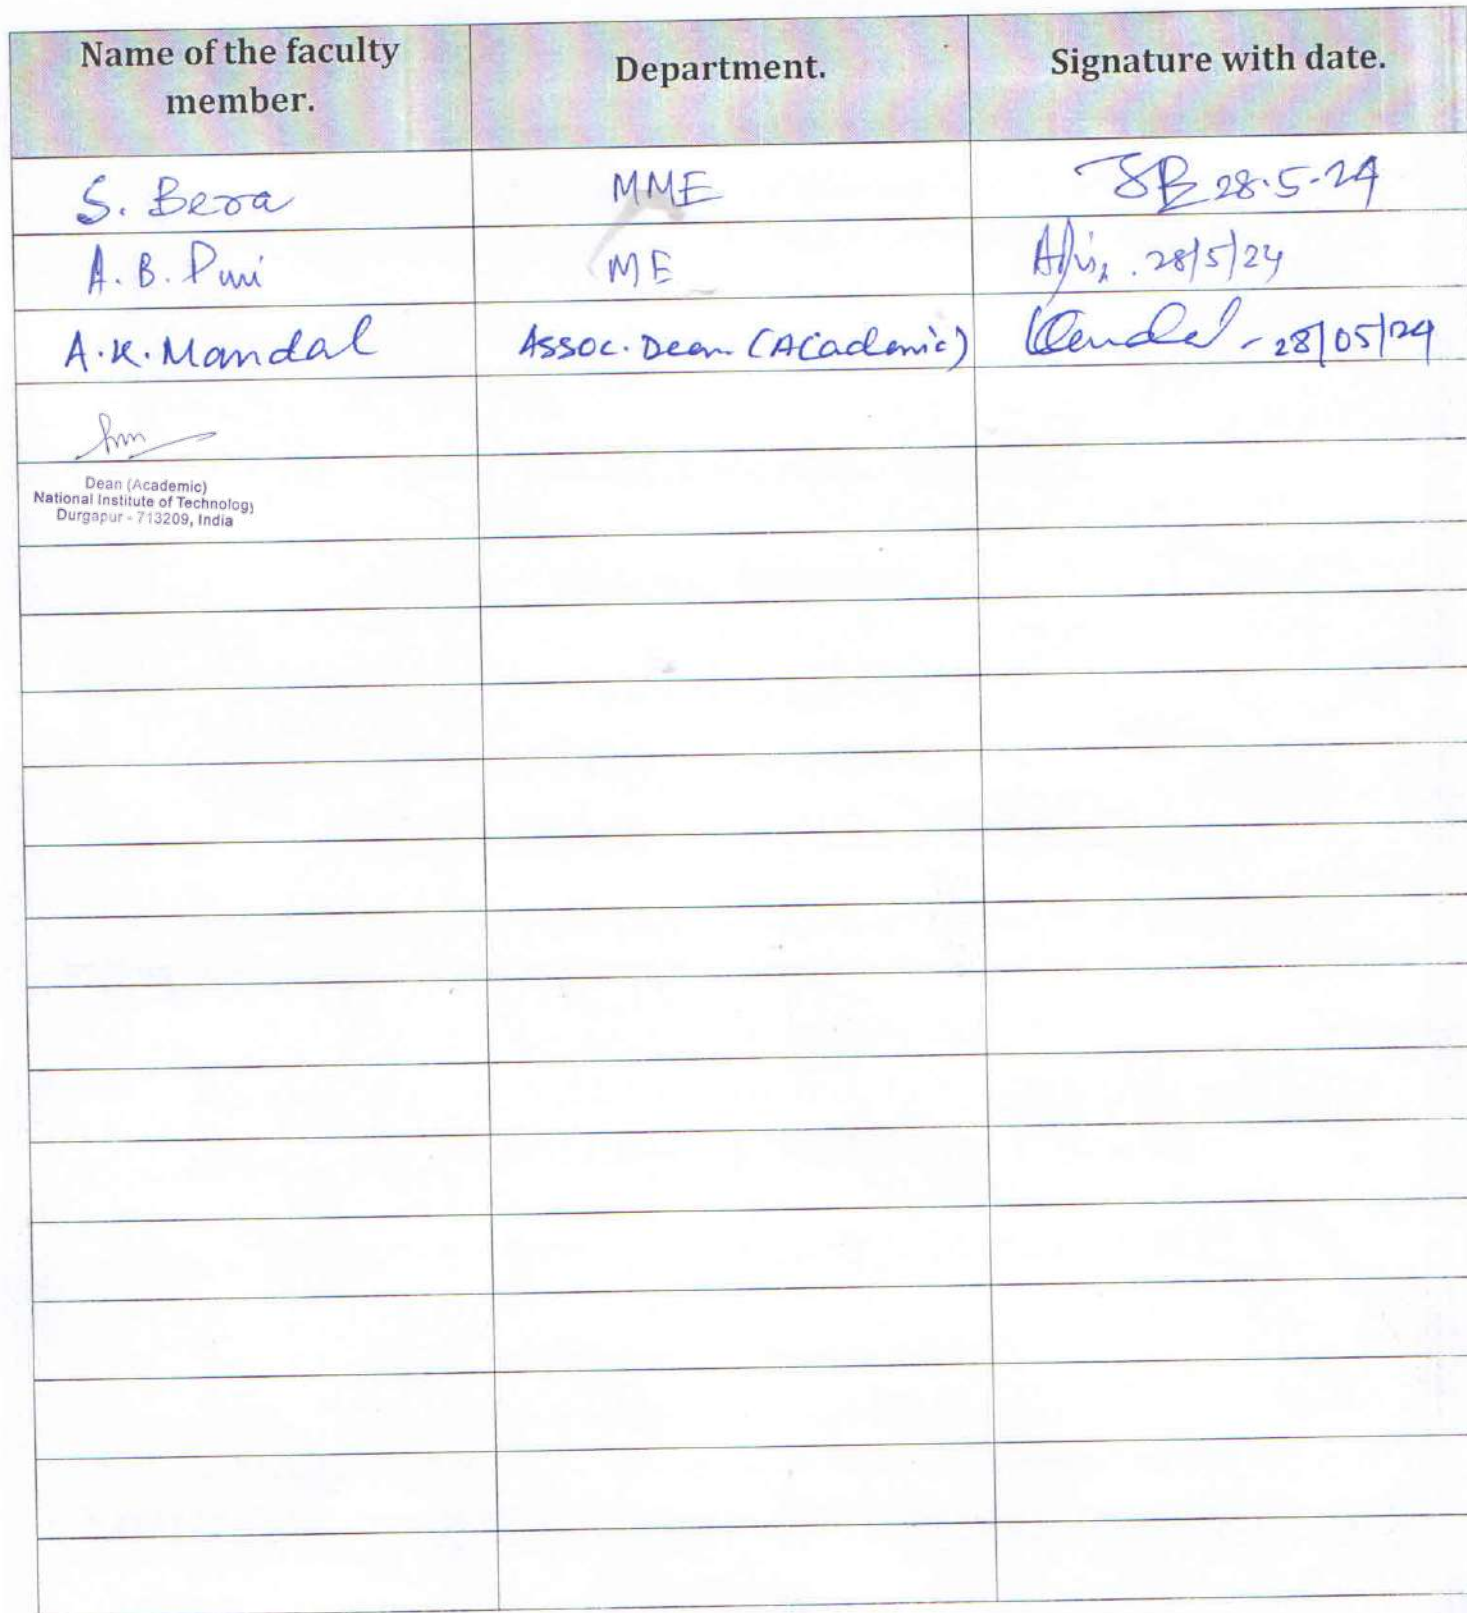 Name of the faculty member. Department. Signature with date.
S. Bera MME SB 28.5.24
A. B. Puri ME 28/5/24
A.K. Mandal Assoc. Dean (Academic) 28/05/24
Dean (Academic)
National Institute of Technology
Durgapur - 713209, India